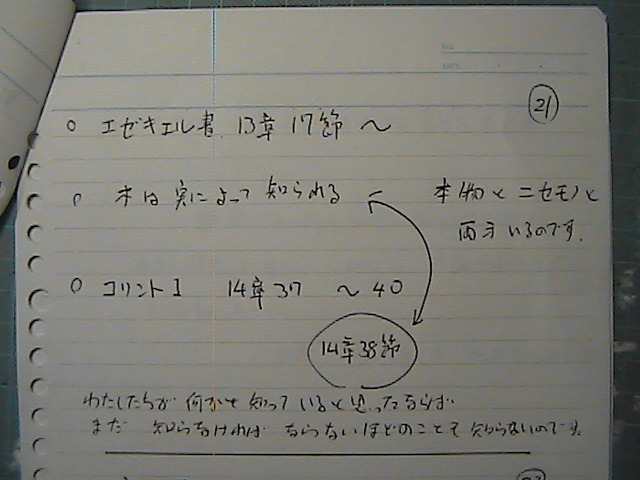 21
○ エゼキエル書 13章 17節 〜
○ 木は実によって知られる
本物とニセモノと
両方いるのです。
○ コリントI 14章37 〜40
14章38節
わたしたちが 何かを知っていると思ったならば
まだ 知らなければ ならないほどのことを知らないのです。